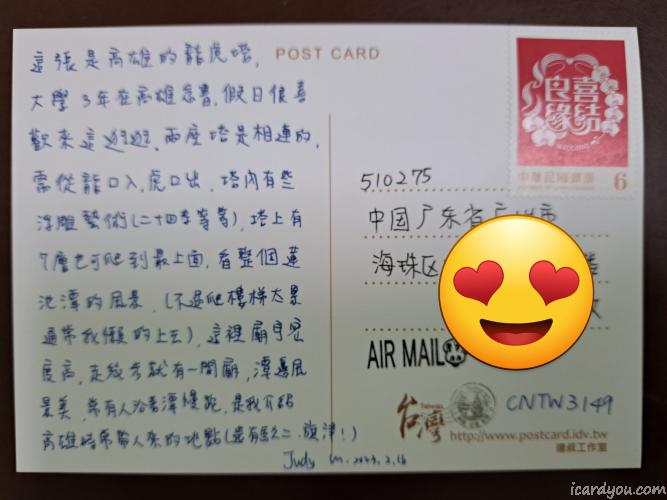 這張是高雄的龍虎塔,
大學3年在高雄念書,假日很喜
歡來這逛逛,兩座塔是相連的,
需從龍口入,虎口出,塔內有些
浮雕藝術(二十四孝等等),塔上有
7層也可爬到最上面,看整個蓮
池潭的風景,(不過爬樓梯太累
通常我懶的上去),這裡廟宇密
度高,走幾步就有一間廟,潭邊風
景美,常有人沿著潭慢跑,是我介紹
高雄時常帶人來的地點(還有 旗津!)
Judy 2.16
POST CARD
良緣喜結
WEDDING
中華民國郵票
6
510275
中国广东省广州市
海珠区
AIR MAIL
台灣
Taiwan
CNTW3149
http://www.postcard.idv.tw
工作室
icardyou.com